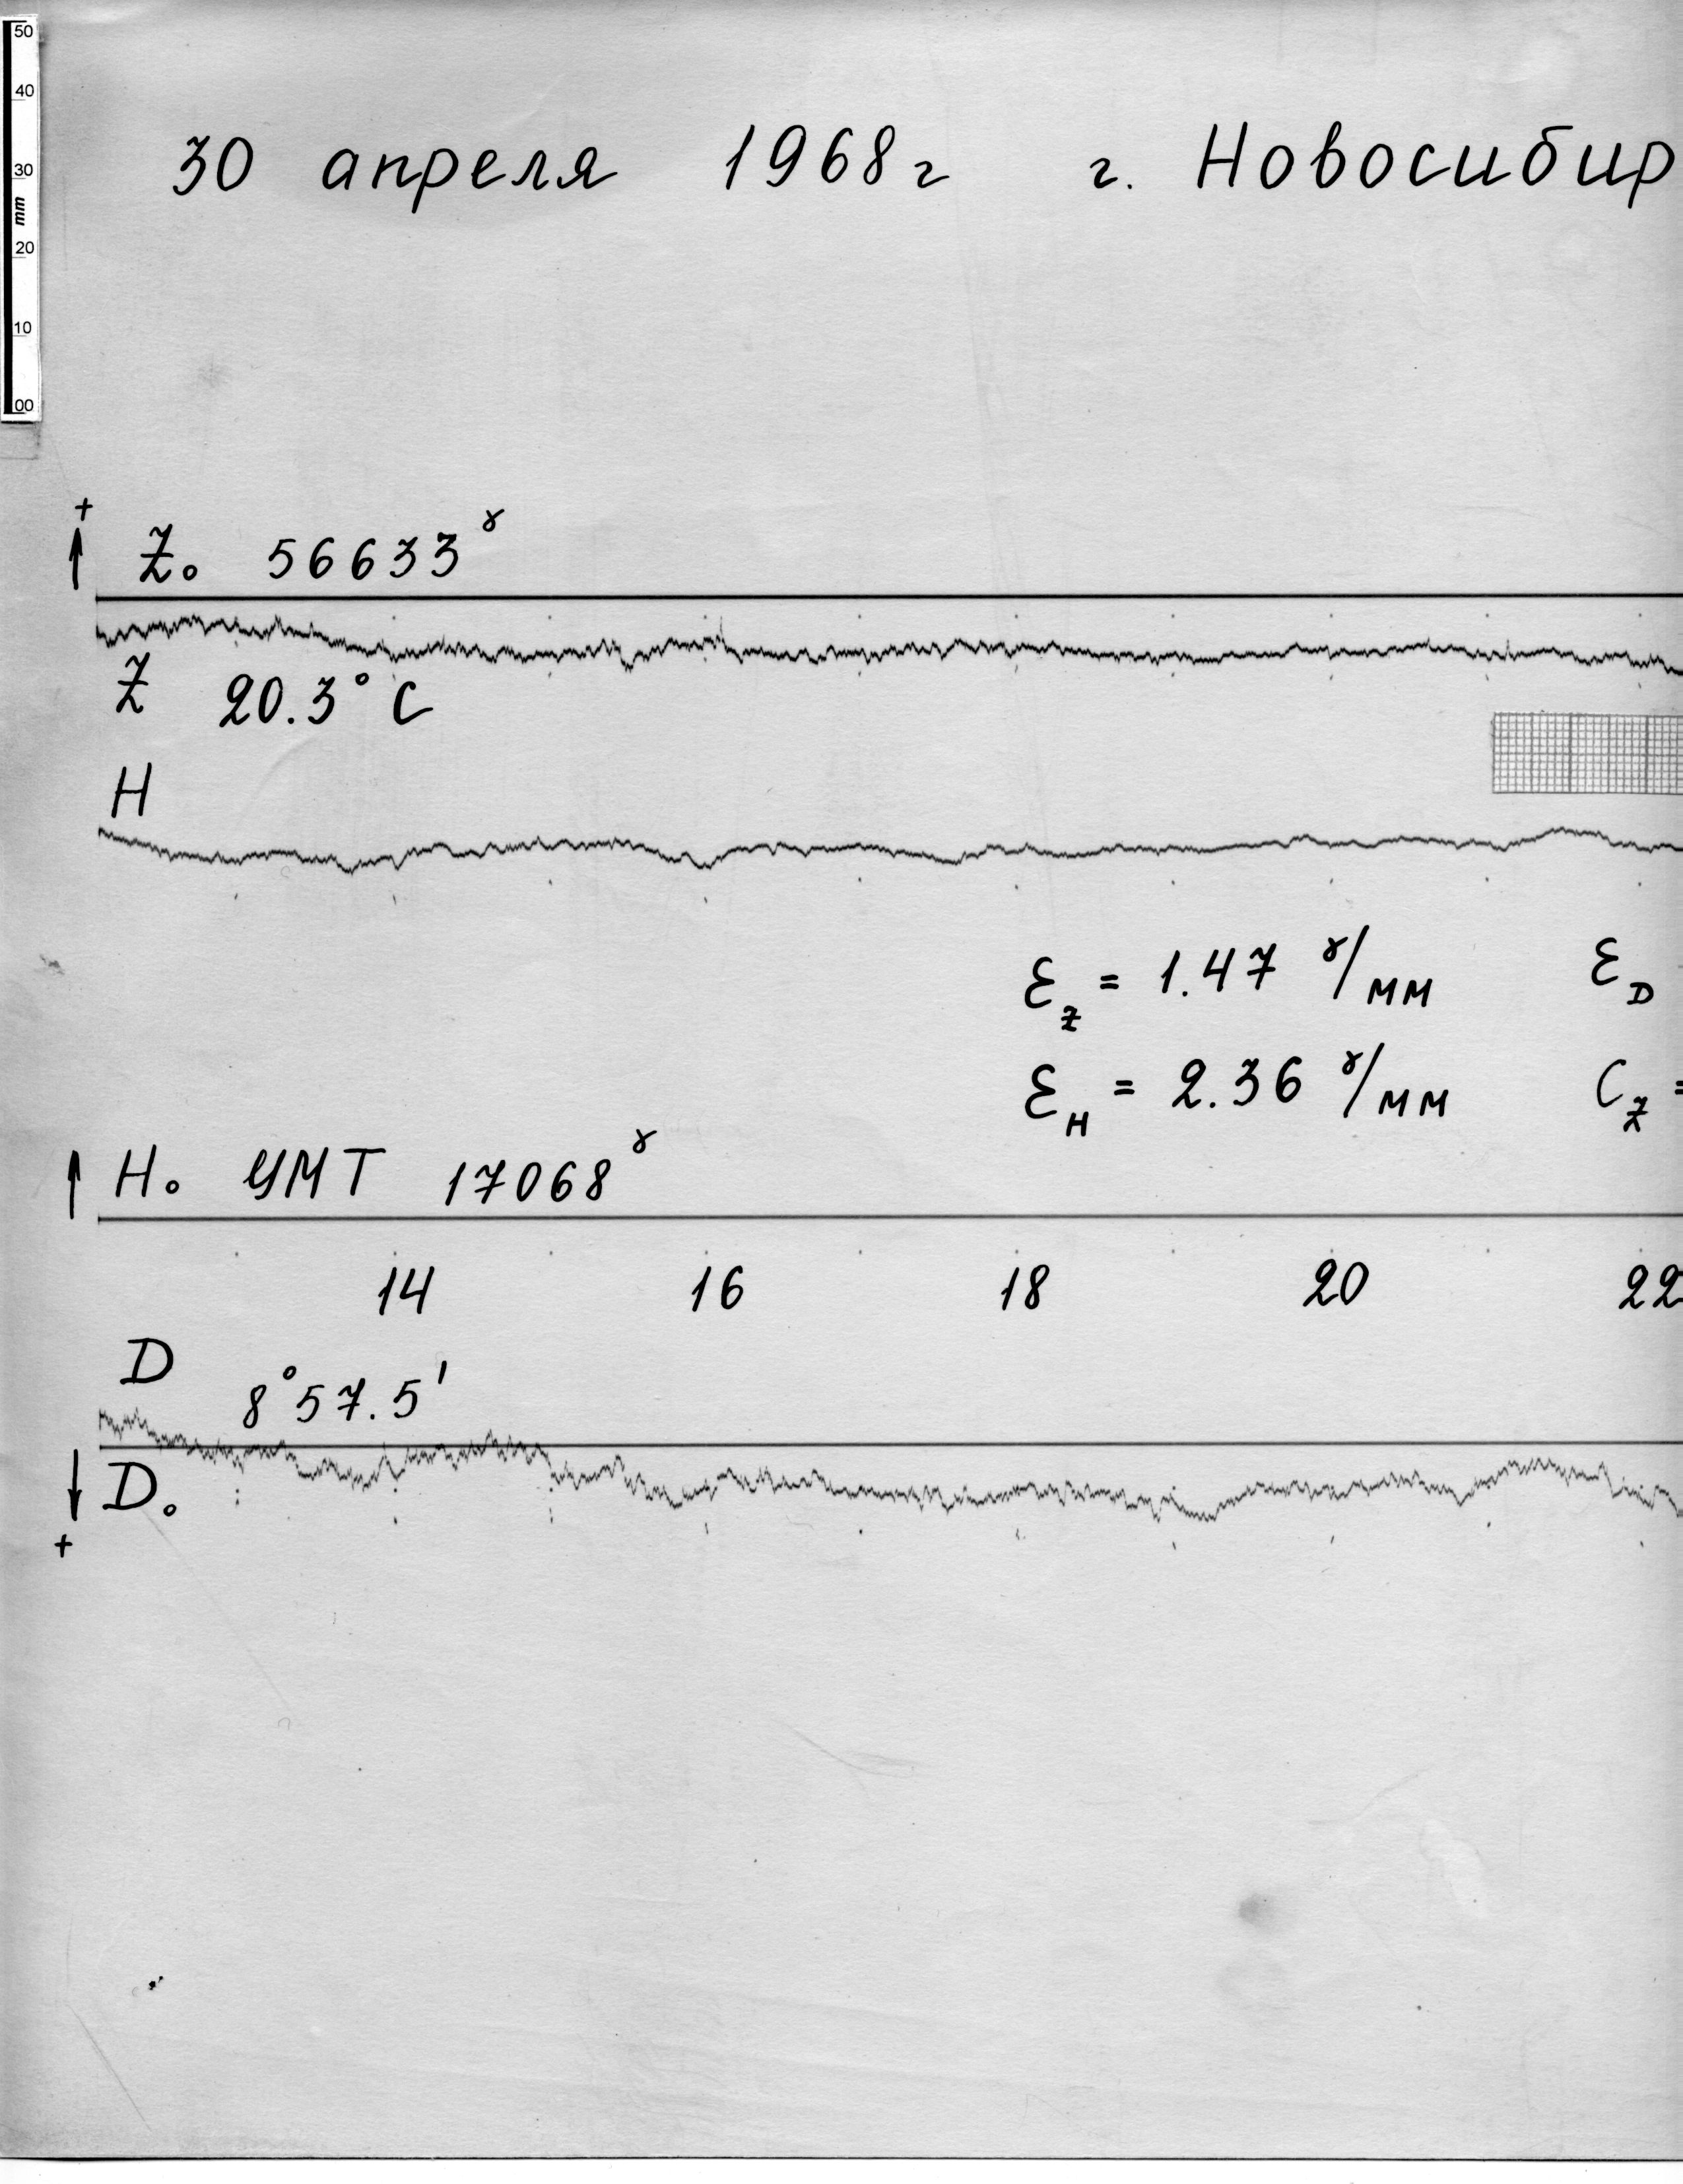 50
40
30
mm
20
10
00
30 апреля 1968г г. Новосибир
+
Z₀ 56633 ɣ
Z 20.3° C
H
Ɛ_Z = 1.47 ɣ/мм Ɛ_D
Ɛ_H = 2.36 ɣ/мм C_Z =
H₀ УМТ 17068 ɣ
14 16 18 20 22
D 8°57.5'
D₀
+